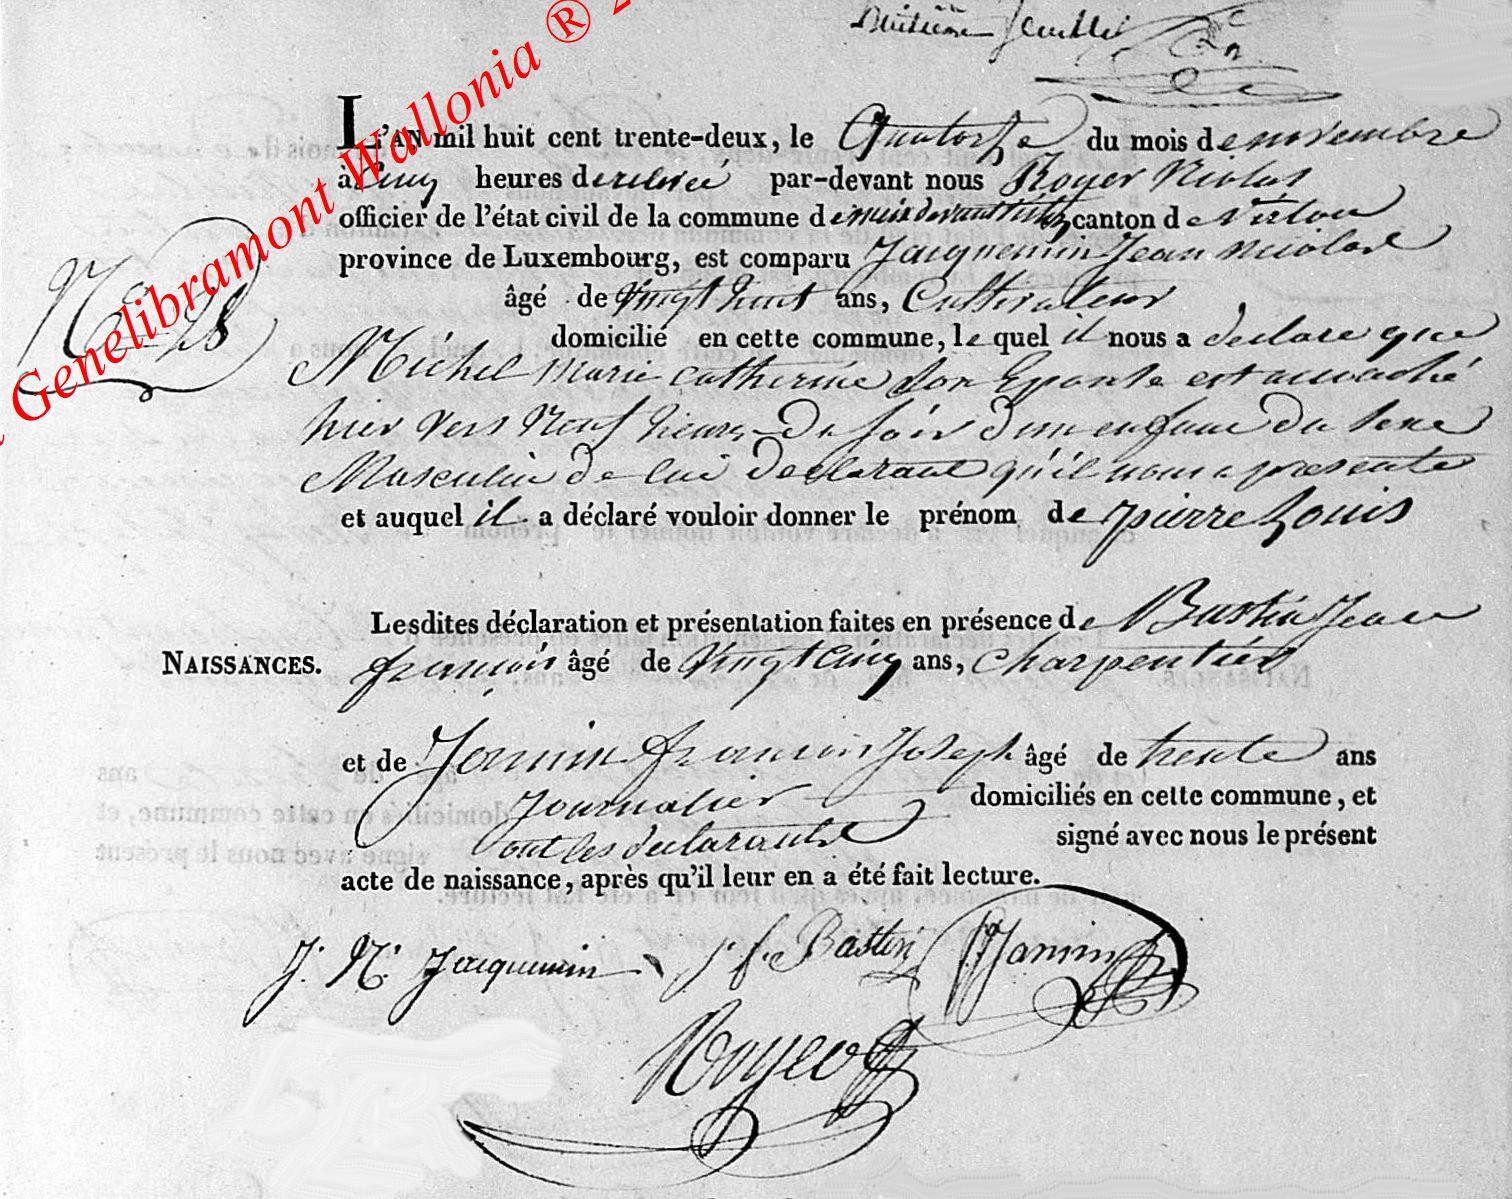 huitième feuillet
L'AN mil huit cent trente-deux, le Quatorze du mois de novembre
à Cinq heures de relevée par-devant nous Royer Nicolas
officier de l'état civil de la commune de meix devant Virton canton de Virton
province de Luxembourg, est comparu Jacquemin Jean Nicolas
âgé de Vingt huit ans, Cultivateur
N° 28
domicilié en cette commune, le quel il nous a declare que
Michel Marie Catherine Son Epouse est accouché
hier vers Neuf heures Du soir d'un enfant du Sexe
Masculin de lui declarant qu'il nous a presenté
et auquel il a déclaré vouloir donner le prénom de pierre Louis
Lesdites déclaration et présentation faites en présence de Bastin Jean
NAISSANCES. françois âgé de Vingt Cinq ans, charpentier
et de Jannin francois Joseph âgé de trente ans
Journalier domiciliés en cette commune, et
ont les declarants signé avec nous le présent
acte de naissance, après qu'il leur en a été fait lecture.
J. N. Jacquemin J. f. Bastin Jannin
Royer
Genelibramont Wallonia ® 2